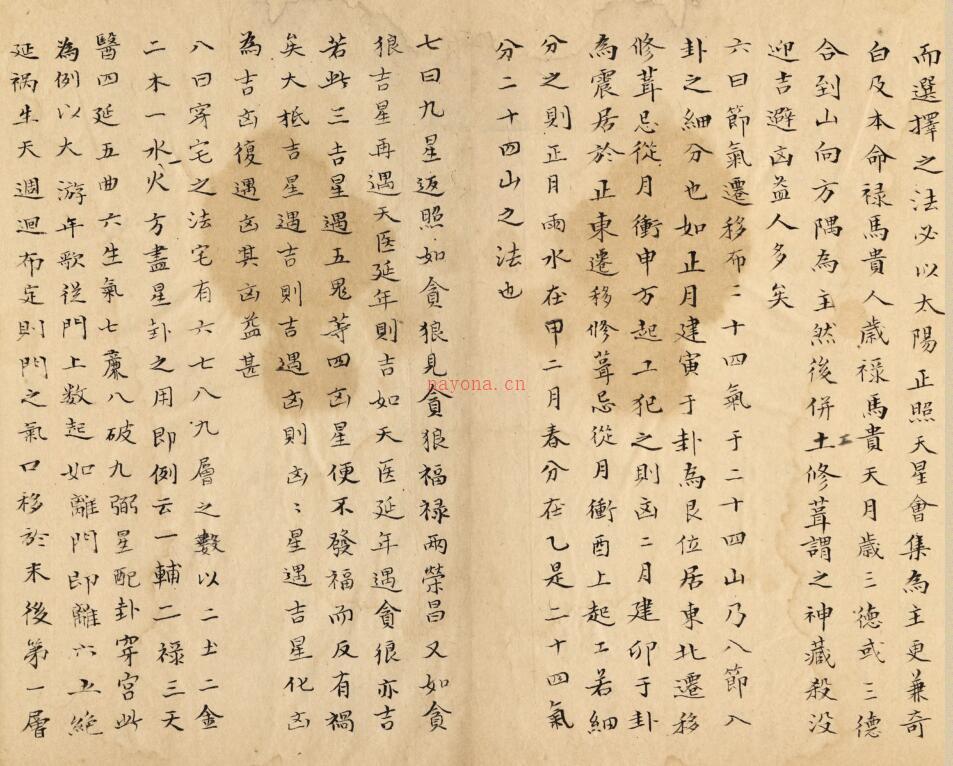 而選擇之法必以太陽正照天星會集為主更兼奇
白及本命禄馬貴人歲禄馬貴天月歲三德或三德
合到山向方隅為主然後併土工修葺謂之神藏殺没
迎吉避凶益人多矣
六曰節氣遷移布二十四氣于二十四山乃八節入
卦之細分也如正月建寅于卦為艮位居東北遷移
修葺忌從月衝申方起工犯之則凶二月建卯于卦
為震居於正東遷移修葺忌從月衝酉上起工若細
分之則正月雨水在甲二月春分在乙是二十四氣
分二十四山之法也
七曰九星返照如貪狼見貪狼福禄兩榮昌又如貪
狼吉星再遇天医延年則吉如天医延年遇貪狼亦吉
若此三吉星遇五鬼等四凶星便不發福而反有禍
矣大抵吉星遇吉則吉遇凶則凶〻星遇吉星化凶
為吉凶復遇凶其凶益甚
八曰穿宅之法宅有六七八九層之數以二土二金
二木一水一火方盡星卦之用即例云一輔二禄三天
醫四延五曲六生氣七廉八破九弼星配卦穿宮此
為例以大游年歌從門上数起如離門即離六五絶
延祸生天週迴布定則門之氣口移於末後第一層
nayona.cn